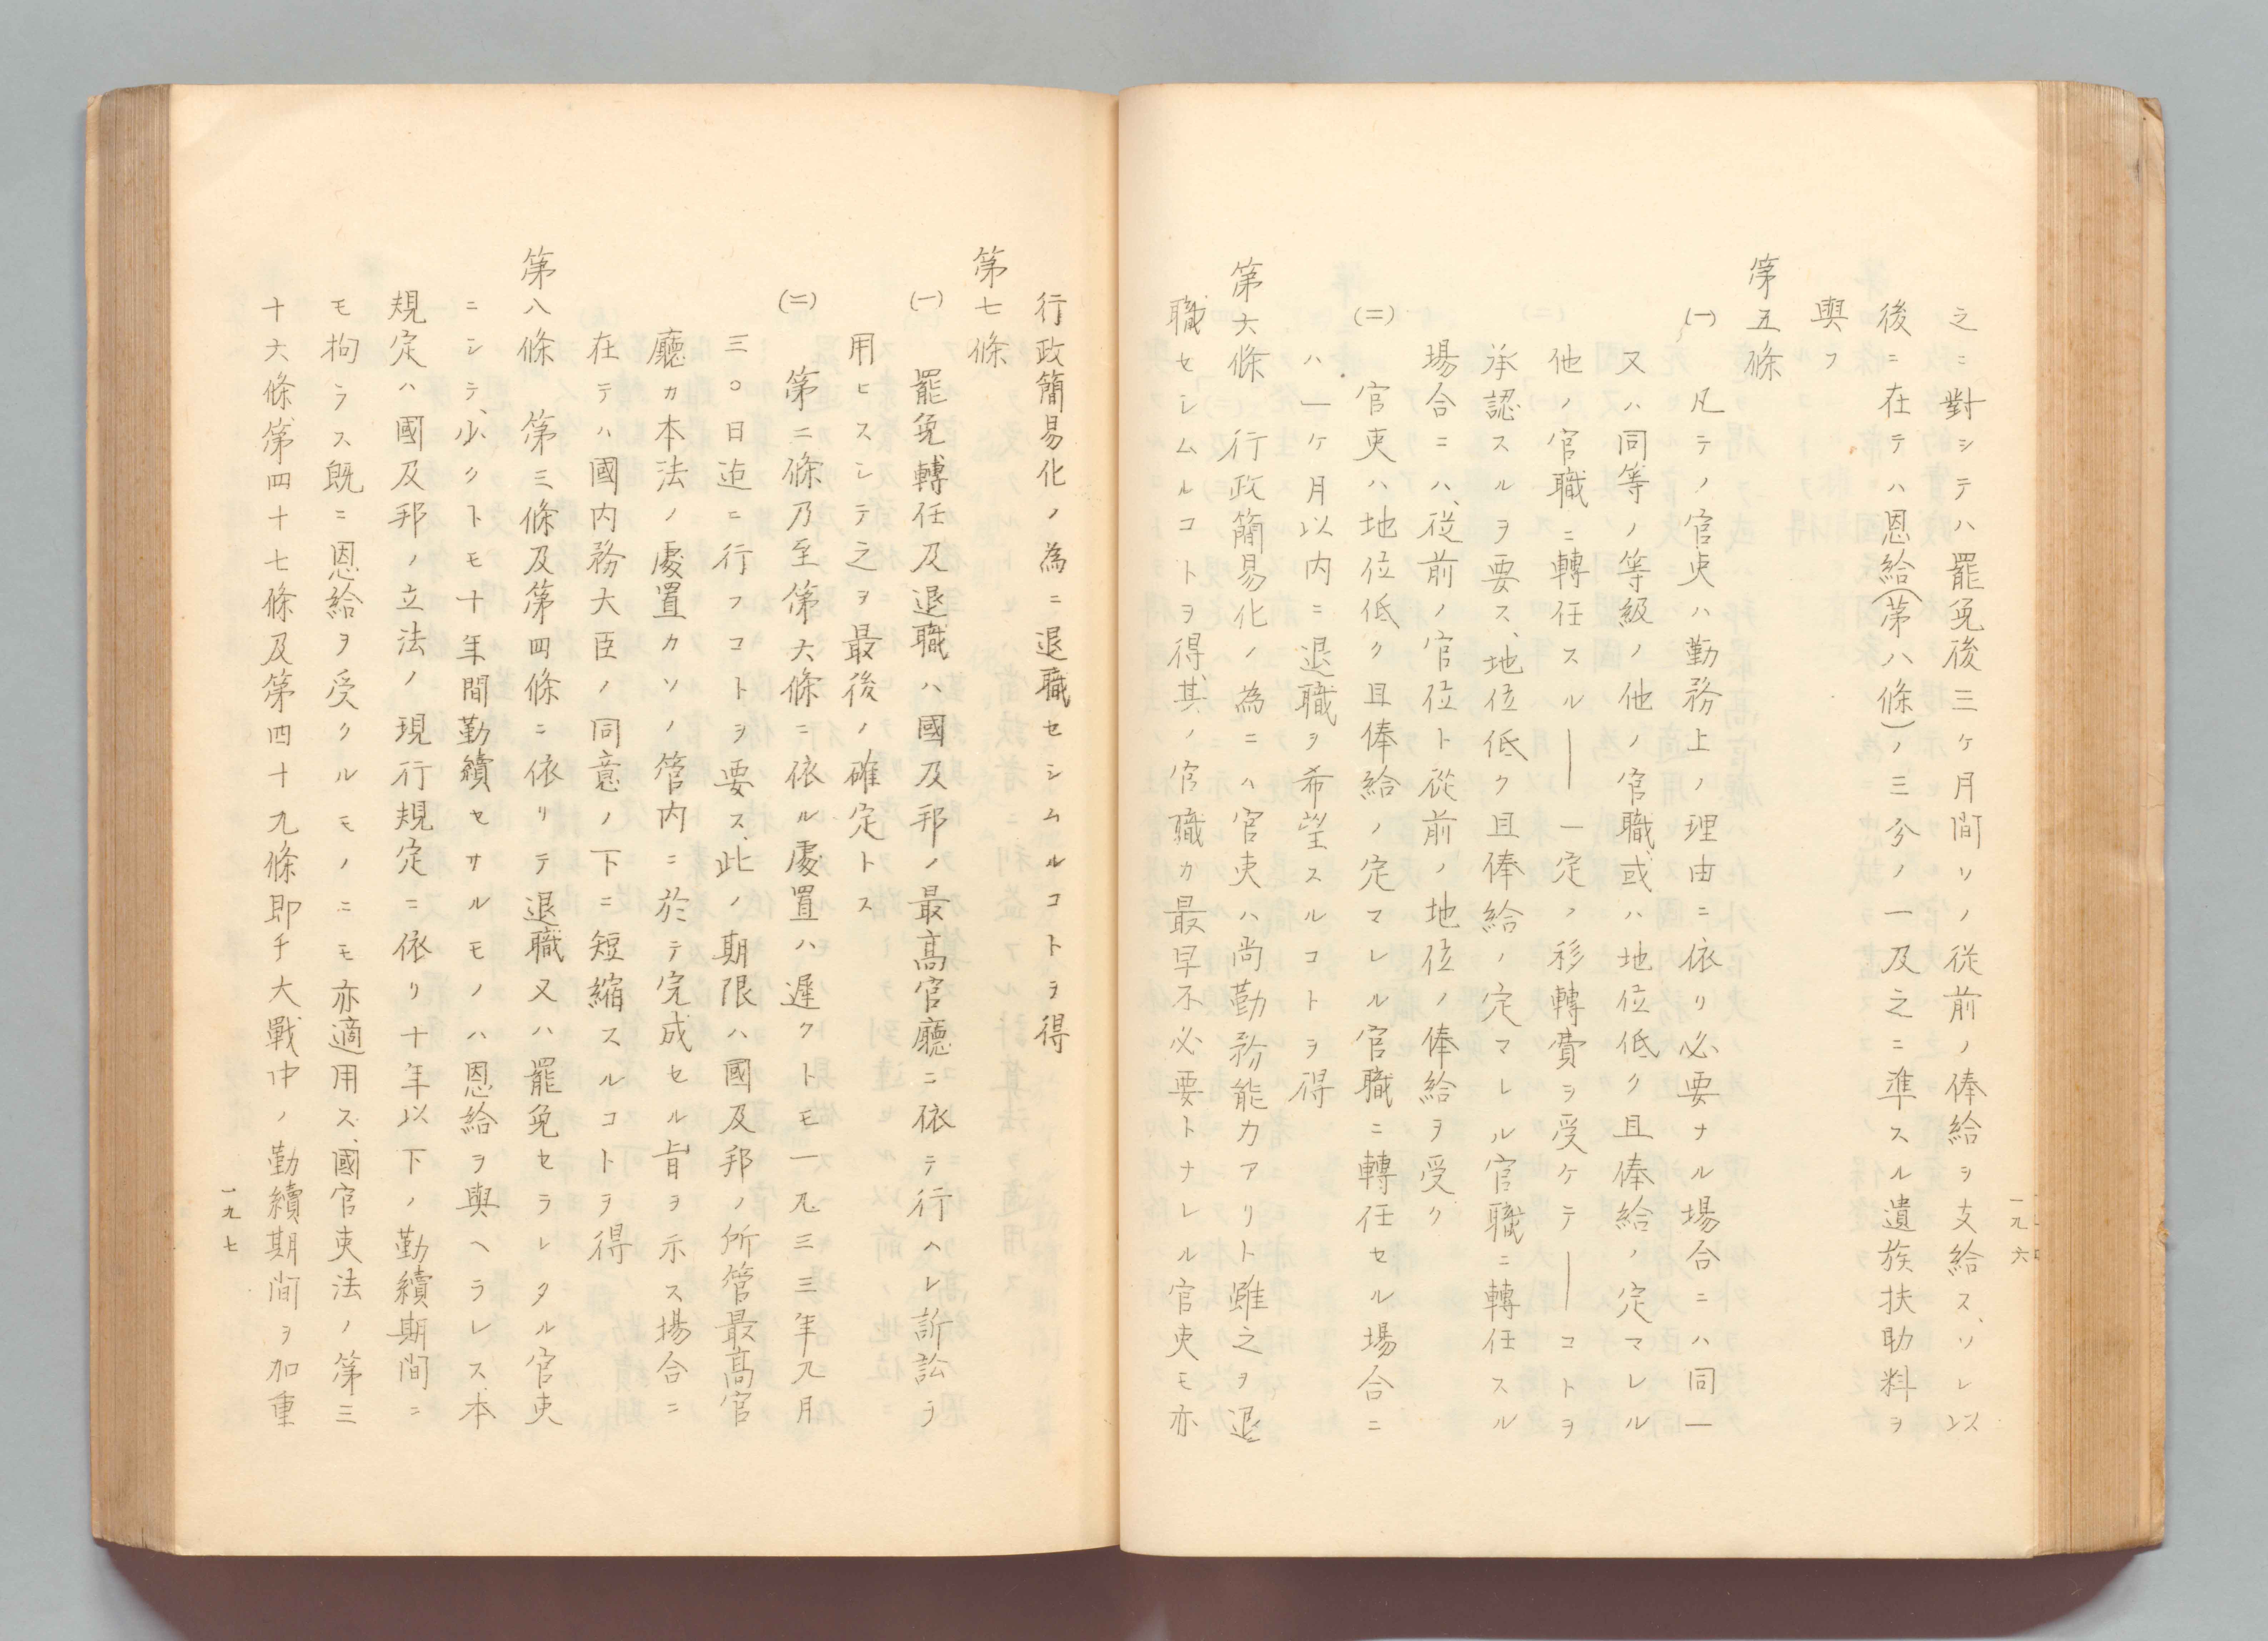 之ニ對シテハ罷免後三ケ月間ソノ從前ノ俸給ヲ支給ス、ソレ以
後ニ在テハ恩給(第八條)ノ三分ノ一及之ニ準スル遺族扶助料ヲ
與フ
第五條
(一) 凡テノ官吏ハ勤務上ノ理由ニ依リ必要ナル場合ニハ同一
又ハ同等ノ等級ノ他ノ官職或ハ地位低ク且俸給ノ定マレル
他ノ官職ニ轉任スル―一定ノ移轉費ヲ受ケテ―コトヲ
承認スルヲ要ス、地位低ク且俸給ノ定マレル官職ニ轉任スル
場合ニハ、從前ノ官位ト從前ノ地位ノ俸給ヲ受ク
(二) 官吏ハ地位低ク且俸給ノ定マレル官職ニ轉任セル場合ニ
ハ一ケ月以内ニ退職ヲ希望スルコトヲ得
第六條 行政簡易化ノ為ニハ官吏ハ尚勤務能力アリト雖之ヲ退
職セシムルコトヲ得、其ノ官職カ最早不必要トナレル官吏モ亦
一九六
行政簡易化ノ為ニ退職セシムルコトヲ得
第七條
(一) 罷免、轉任及退職ハ國及邦ノ最高官廳ニ依テ行ハレ訴訟ヲ
用ヒスシテ之ヲ最後ノ確定トス
(二) 第二條乃至第六條ニ依ル處置ハ遲クトモ一九三三年九月
三〇日迄ニ行フコトヲ要ス、此ノ期限ハ國及邦ノ所管最高官
廳カ本法ノ處置カソノ管内ニ於テ完成セル旨ヲ示ス場合ニ
在テハ國内務大臣ノ同意ノ下ニ短縮スルコトヲ得
第八條 第三條及第四條ニ依リテ退職又ハ罷免セラレタル官吏
ニシテ、少クトモ十年間勤續セサルモノハ恩給ヲ與ヘラレス、本
規定ハ國及邦ノ立法ノ現行規定ニ依リ十年以下ノ勤續期間ニ
モ拘ラス既ニ恩給ヲ受クルモノニモ亦適用ス、國官吏法ノ第三
十六條、第四十七條及第四十九條即チ大戰中ノ勤續期間ヲ加重
一九七